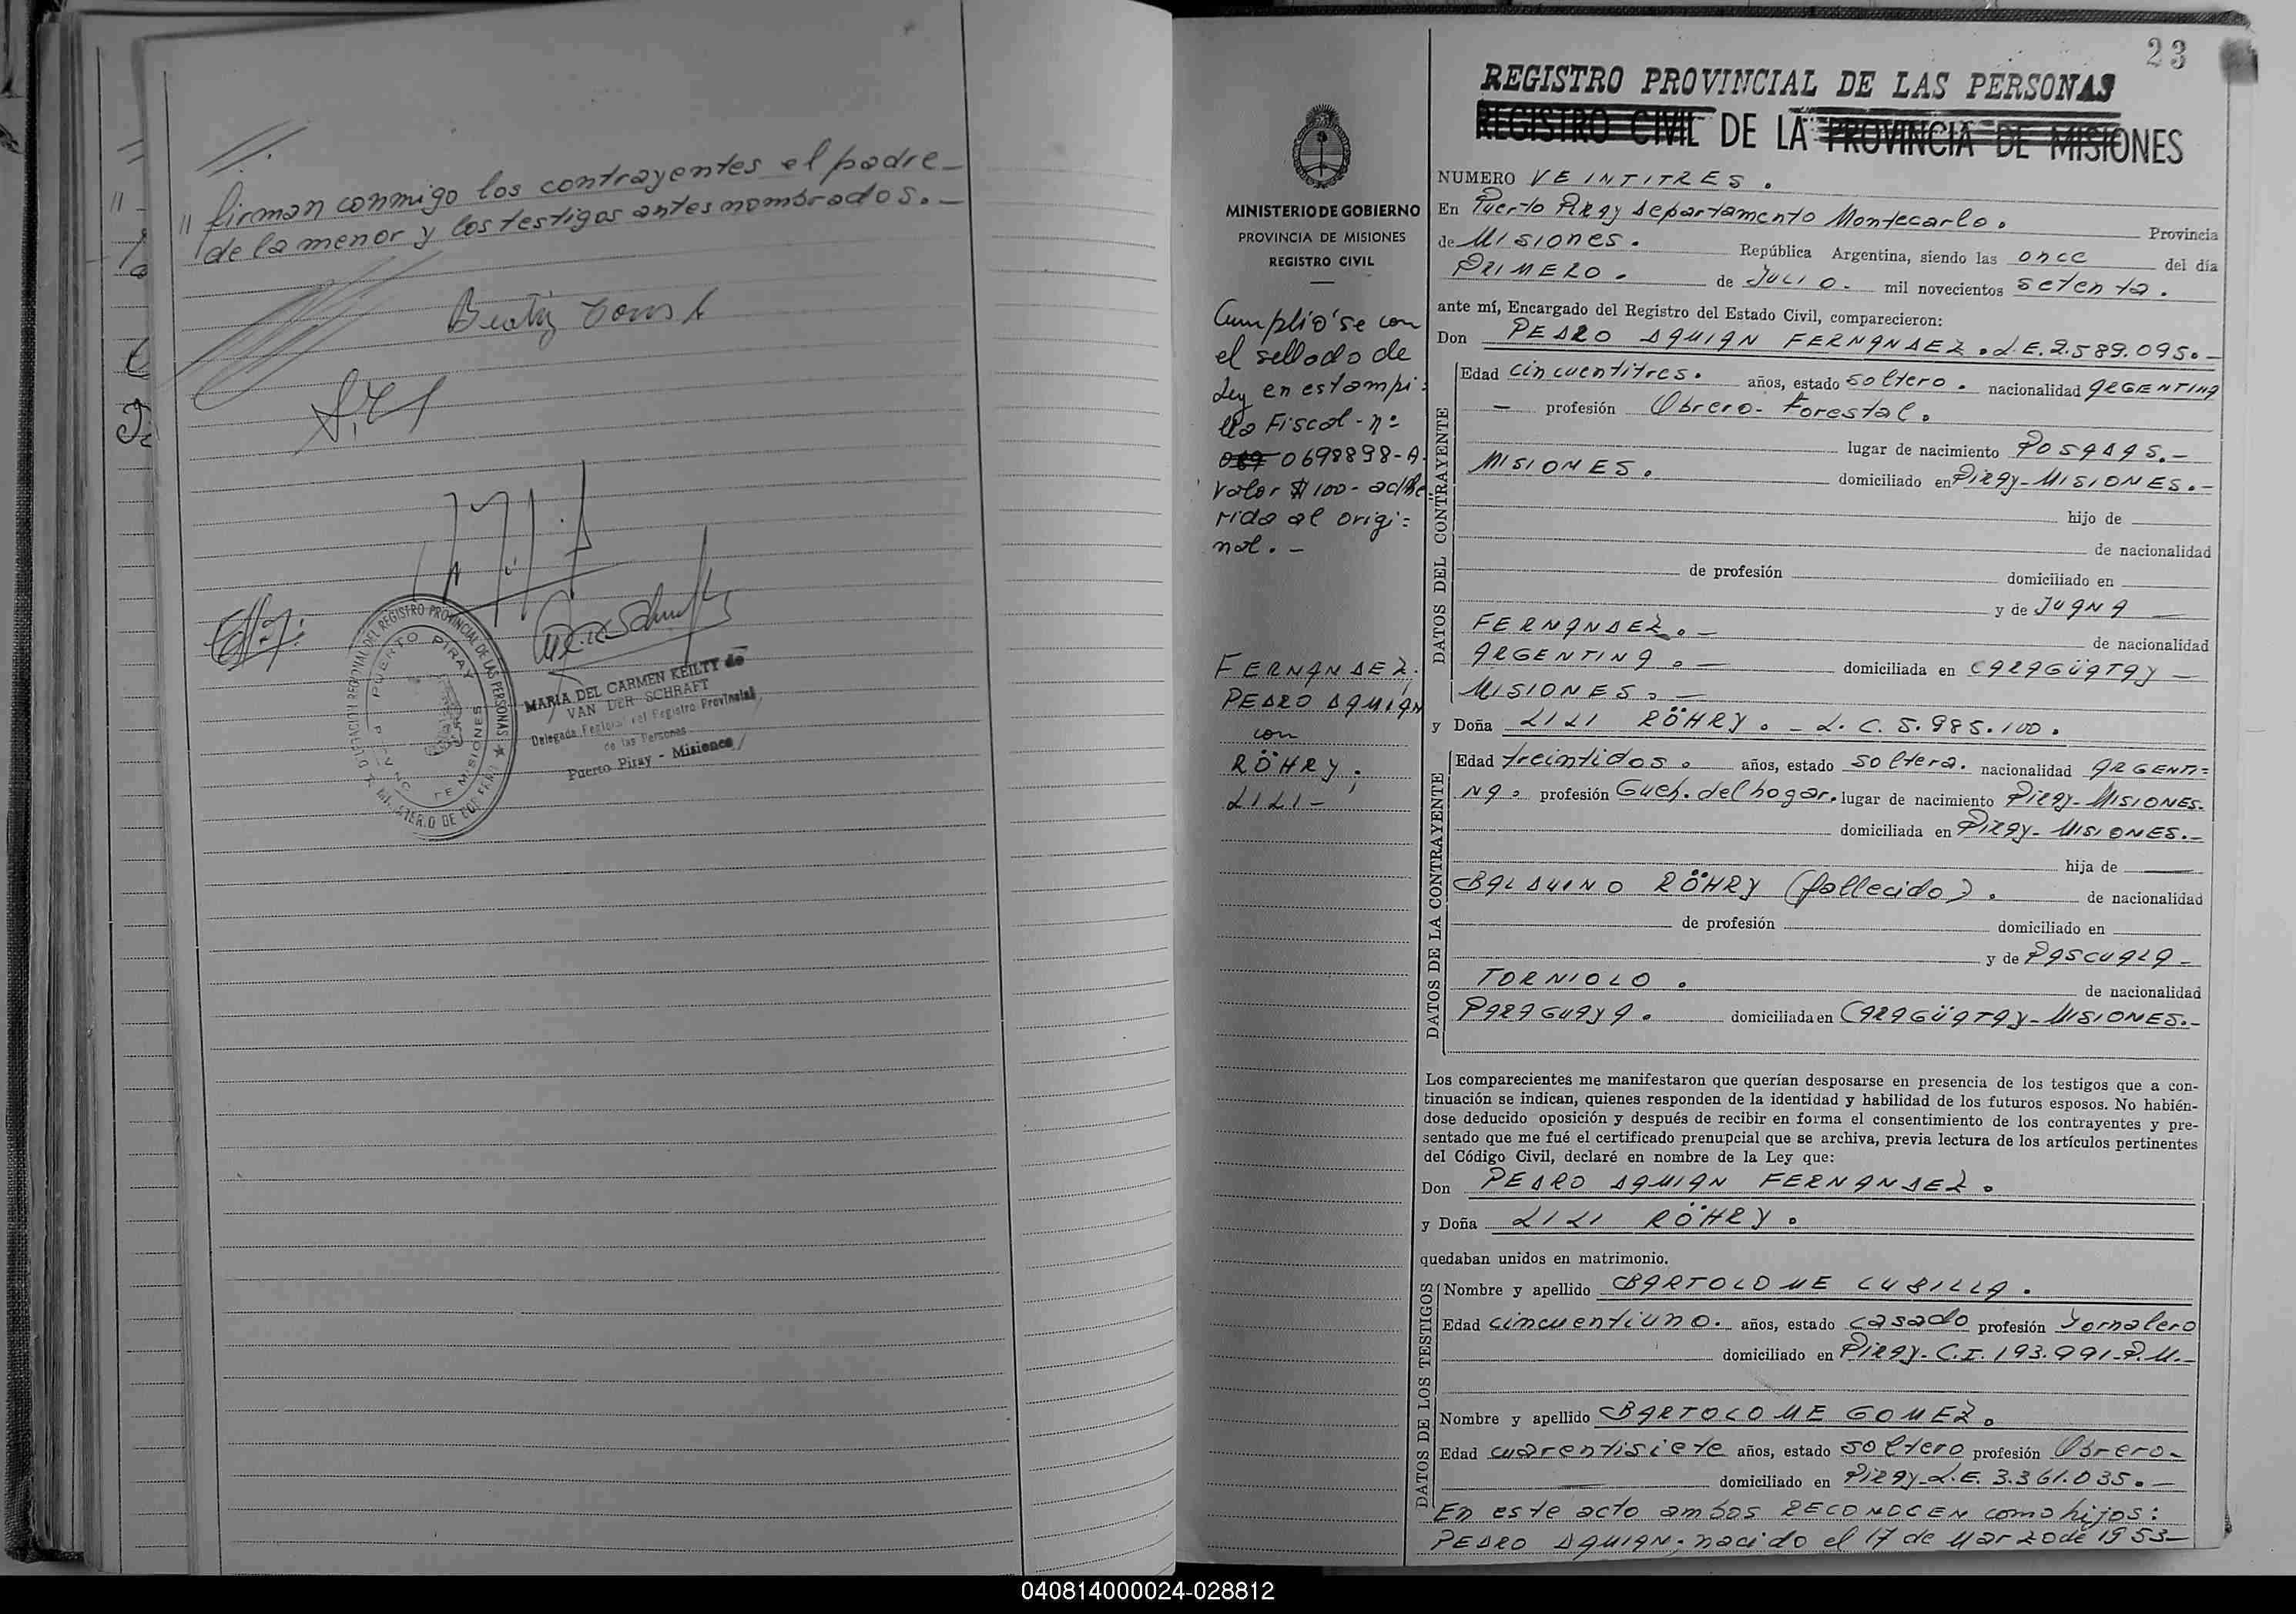 firman conmigo los contrayentes el padre —
de la menor y los testigos antes nombrados. —
Beatriz
DELEGACION REGIONAL DEL REGISTRO PROVINCIAL DE LAS PERSONAS ★
PUERTO PIRAY
MISIONES
MINISTERIO DE GOBIERNO
MARIA DEL CARMEN KEILTY de
VAN DER SCHRAFT
Delegada Regional del Registro Provincial
de las Personas
Puerto Piray - Misiones
23
REGISTRO PROVINCIAL DE LAS PERSONAS
REGISTRO CIVIL DE LA PROVINCIA DE MISIONES
MINISTERIO DE GOBIERNO
PROVINCIA DE MISIONES
REGISTRO CIVIL
Cumplió se con
el sellado de
Ley en estampi=
lla Fiscal - nº
067 0698898-A.
Valor $ 100 - adhe
rida al origi=
nal. —
FERNANDEZ,
PEDRO DAMIAN
con
RÖHRY;
LILI —
NUMERO VEINTITRES.
En Puerto Piray Departamento Montecarlo. Provincia
de Misiones. República Argentina, siendo las once del día
PRIMERO. de JULIO. mil novecientos setenta.
ante mí, Encargado del Registro del Estado Civil, comparecieron:
Don PEDRO DAMIAN FERNANDEZ. L.E. 2.589.095. —
DATOS DEL CONTRAYENTE
Edad cincuentitres. años, estado soltero. nacionalidad ARGENTINA
— profesión Obrero - Forestal.
lugar de nacimiento POSADAS. —
MISIONES. domiciliado en Piray - MISIONES. —
hijo de
de nacionalidad
de profesión domiciliado en
y de JUANA —
FERNANDEZ. — de nacionalidad
ARGENTINA. — domiciliada en CARAGÜATAY —
MISIONES. —
y Doña LILI RÖHRY. — L. C. 5.985.100.
DATOS DE LA CONTRAYENTE
Edad treintidos. años, estado soltera. nacionalidad ARGENTI=
NA. profesión Queh. del hogar. lugar de nacimiento Piray - MISIONES.
domiciliada en Piray - MISIONES. —
hija de
BALDUINO RÖHRY (fallecido). de nacionalidad
de profesión domiciliado en
y de PASCUALA —
TORNIOLO. de nacionalidad
PARAGUAYA. domiciliada en CARAGÜATAY - MISIONES. —
Los comparecientes me manifestaron que querían desposarse en presencia de los testigos que a con-
tinuación se indican, quienes responden de la identidad y habilidad de los futuros esposos. No habién-
dose deducido oposición y después de recibir en forma el consentimiento de los contrayentes y pre-
sentado que me fué el certificado prenupcial que se archiva, previa lectura de los artículos pertinentes
del Código Civil, declaré en nombre de la Ley que:
Don PEDRO DAMIAN FERNANDEZ.
y Doña LILI RÖHRY.
quedaban unidos en matrimonio.
DATOS DE LOS TESTIGOS
Nombre y apellido BARTOLOME CUBILLA.
Edad cincuentiuno. años, estado casado profesión Jornalero
domiciliado en Piray - C.I. 193.991 - P.M. —
Nombre y apellido BARTOLOME GOMEZ.
Edad cuarentisiete años, estado soltero profesión Obrero —
domiciliado en Piray - L.E. 3.361.035. —
En este acto ambos RECONOCEN como hijos:
PEDRO DAMIAN, nacido el 17 de Marzo de 1953 —
040814000024-028812